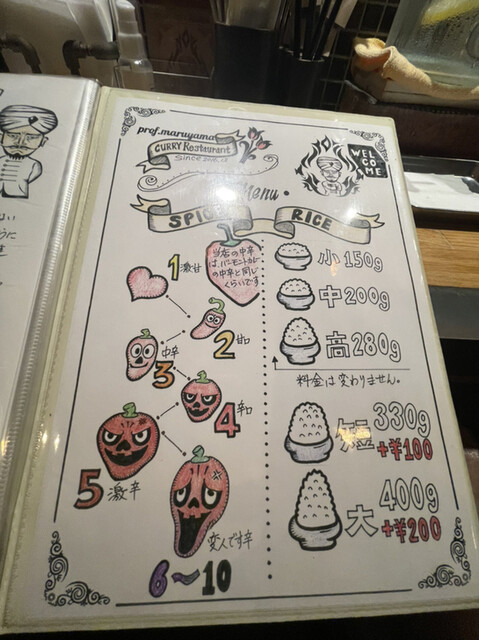 prof.maruyama
CURRY Restaurant
Since
WELCOME
Menu
SPICE
RICE
当店の中辛
は、バーモントカレー
の中辛と同じ
くらいです
1 激甘
2 甘口
中辛
3
4 辛口
5 激辛
変人です辛
6～10
小 150g
中 200g
高 280g
料金は変わりません。
短 330g
+¥100
大 400g
+¥200